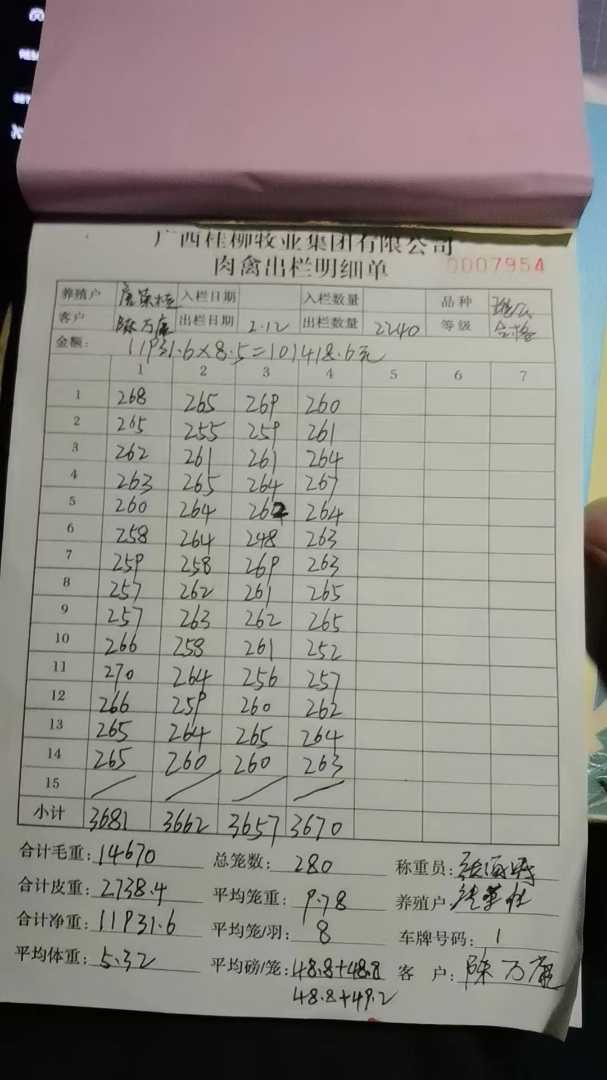 广西桂柳牧业集团有限公司
肉禽出栏明细单 0007954
养殖户 入栏日期 入栏数量 品种
客户 陈万 出栏日期 2.12 出栏数量 2240 等级 合格
金额: 11931.6×8.5=101418.6元
1 2 3 4 5 6 7
1 268 265 269 260
2 265 255 259 261
3 262 261 261 264
4 263 265 264 267
5 260 264 262 264
6 258 264 248 263
7 259 258 269 263
8 257 262 261 265
9 257 263 262 265
10 266 258 261 252
11 270 264 256 257
12 266 259 260 262
13 265 264 265 264
14 265 260 260 263
15
小计 3681 3662 3657 3670
合计毛重: 14670 总笼数: 280 称重员:
合计皮重: 2738.4 平均笼重: 9.78 养殖户
合计净重: 11931.6 平均笼/羽: 8 车牌号码: 1
平均体重: 5.32 平均磅/笼: 48.8+48.8 客户: 陈万
48.8+49.2